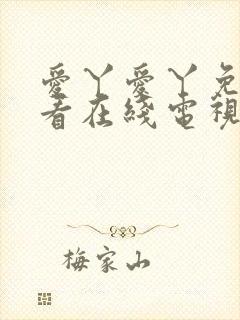 愛丫愛丫免
看在綫電視
梅家山